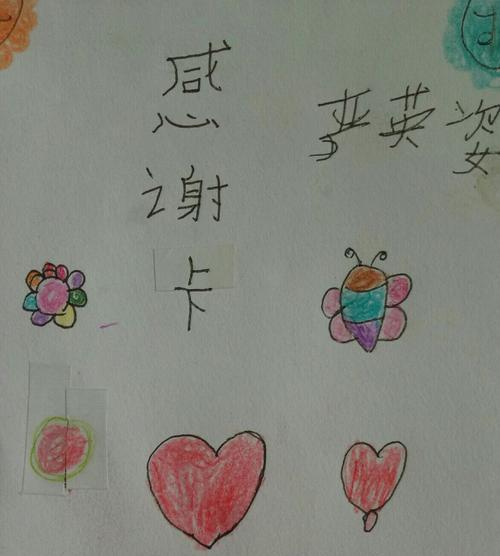 感
谢
卡
严英姿